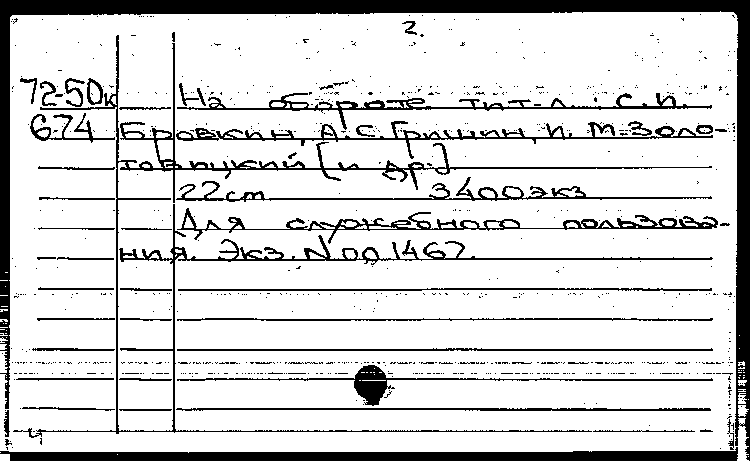 2.
72-50к На обороте тит-л.: С.П.
6-74 Бровкин, А.С. Гришин, И. М. Золо-
товицкий [и др.]
22cm 3400экз
Для служебного пользова-
ния. Экз. N 001467.
4